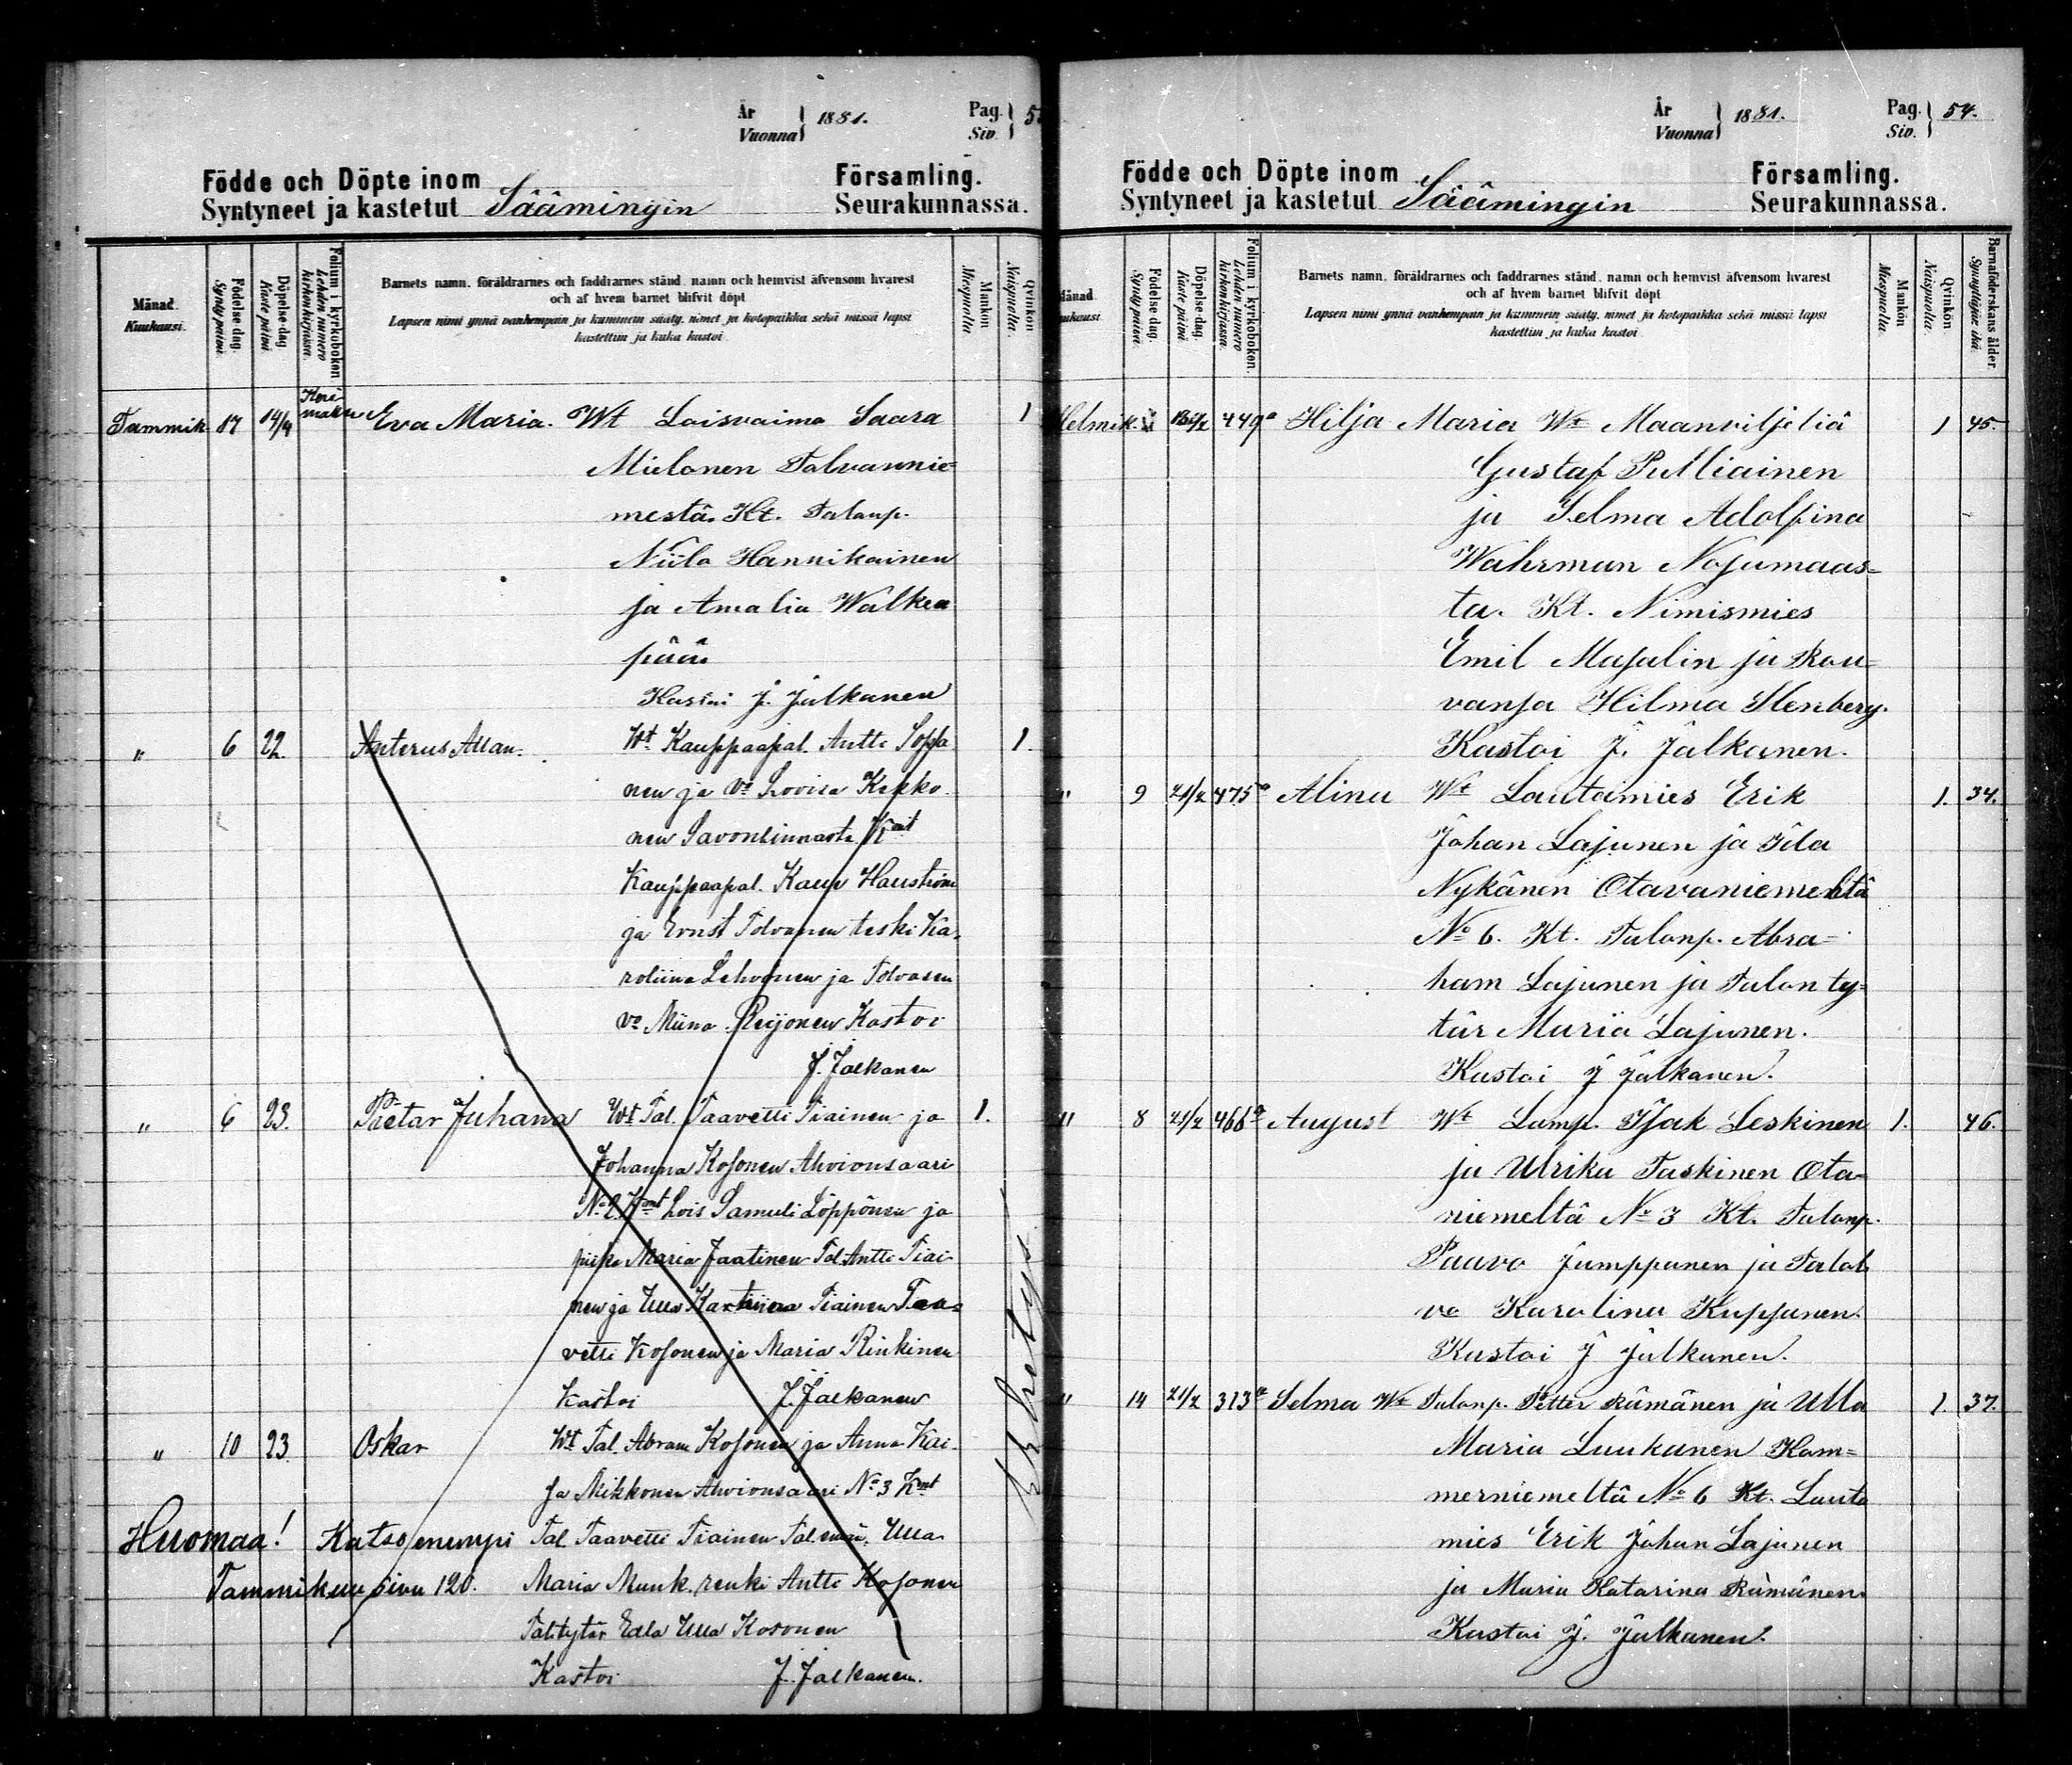 År
Vuonna 1881.
Pag.
Siv. 5
Födde och Döpte inom
Syntyneet ja kastetut Säämingin
Församling.
Seurakunnassa.
Månad.
Kuukausi.
Födelse-dag.
Synty päivä.
Döpelse-dag
Kaste päivä
Folium i kyrkoboken.
Lehden numero kirkonkirjassa.
Barnets namn, föräldrarnes och faddrarnes stånd, namn och hemvist äfvensom hvarest
och af hvem barnet blifvit döpt
Lapsen nimi ynnä vanhempain ja kummein sääty, nimet ja kotopaikka sekä missä lapsi
kastettiin ja kuka kastoi
Mankön
Miespuolia.
Qvinkön
Naispuolia.
Tammik 17 14/4 Keri-
mäken Eva Maria. Wt Loisvaimo Saara 1
Mielonen Talvannie=
mestä. Kt. Talonp.
Niilo Hannikainen
ja Amalia Walkea
pää
Kastoi J. Jalkanen
" 6 22. Anterus Allan. Wt. Kauppaapal. Antti Soppa 1.
nen ja Vo Lovisa Kakko
nen Savonlinnasta Kmt
Kauppaapal. Kaup Hauström
ja Ernst Tolvanen leski Ka-
roliina Lehvonen ja Tolvasen
vo Miina Reijonen Kastoi
J. Jalkanen
" 6 23. Pietar Juhana Wt Tal. Taavetti Tiainen ja 1.
Johanna Kosonen Ahvionsaari
No 2. Kmt Lois Samuli Löppönen ja
piika Maria Jaatinen Tal. Antti Tiai-
nen ja Ulla Katriina Tiainen Taa-
vetti Kosonen ja Maria Rinkinen
Kastoi J. Jalkanen
" 10 23 Oskar Wt Tal. Abram Kosonen ja Anna Kai-
sa Mikkonen Ahvionsaari No 3 Kmt
Huomaa! Katso enempi Tal. Taavetti Tiainen Tal. emä. Ulla
Tammikuu sivu 120. Maria Munk. renki Antti Kosonen
Tal.tytär Edla Ulla Kosonen
Kastoi J. Jalkanen.
År
Vuonna 1881.
Pag.
Siv. 54.
Födde och Döpte inom
Syntyneet ja kastetut Säämingin
Församling.
Seurakunnassa.
Månad
Kuukausi
Födelse dag.
Synty päivä.
Döpelse dag.
Kaste päivä.
Folium i kyrkoboken.
Lehden numero kirkonkirjassa.
Barnets namn, föräldrarnes och faddrarnes stånd, namn och hemvist äfvensom hvarest
och af hvem barnet blifvit döpt
Lapsen nimi ynnä vanhempain ja kummein sääty, nimet ja kotopaikka sekä missä lapsi
kastettiin ja kuka kastoi
Mankön
Miespuolia.
Qvinkön
Naispuolia.
Barnaföderskans ålder.
Synnyttäjän ikä.
Helmik. 449a Hilja Maria Wt Maanviljeliä 1 45.
Gustaf Pulliainen
ja Selma Adolfina
Wahrman Nojumaas=
ta. Kt. Nimismies
Emil Majalin ja Rou=
vansa Hilma Stenberg.
Kastoi J. Jalkanen.
" 9 21/2 475a Alina Wt Lautamies Erik 1. 34.
Johan Lajunen ja Ida
Nykänen Otavaniemeltä
No 6. Kt. Talonp. Abra=
ham Lajunen ja Talon ty=
tär Maria Lajunen.
Kastoi J Jalkanen.
" 8 21/2 466a August Wt Lamp. Isak Leskinen 1. 46.
ja Ulrika Taskinen Ota-
niemeltä No 3 Kt. Talonp.
Paavo Jumppanen ja Talol.
vo Karolina Kuppanen.
Kastoi J Jalkanen.
" 14 21/2 313a Selma Wt Talonp. Petter Rämänen ja Ulla 1. 37.
Maria Luukanen Ham=
merniemeltä No 6 Kt. Lauta
mies Erik Johan Lajunen
ja Maria Katarina Rämänen
Kastoi J. Jalkanen.